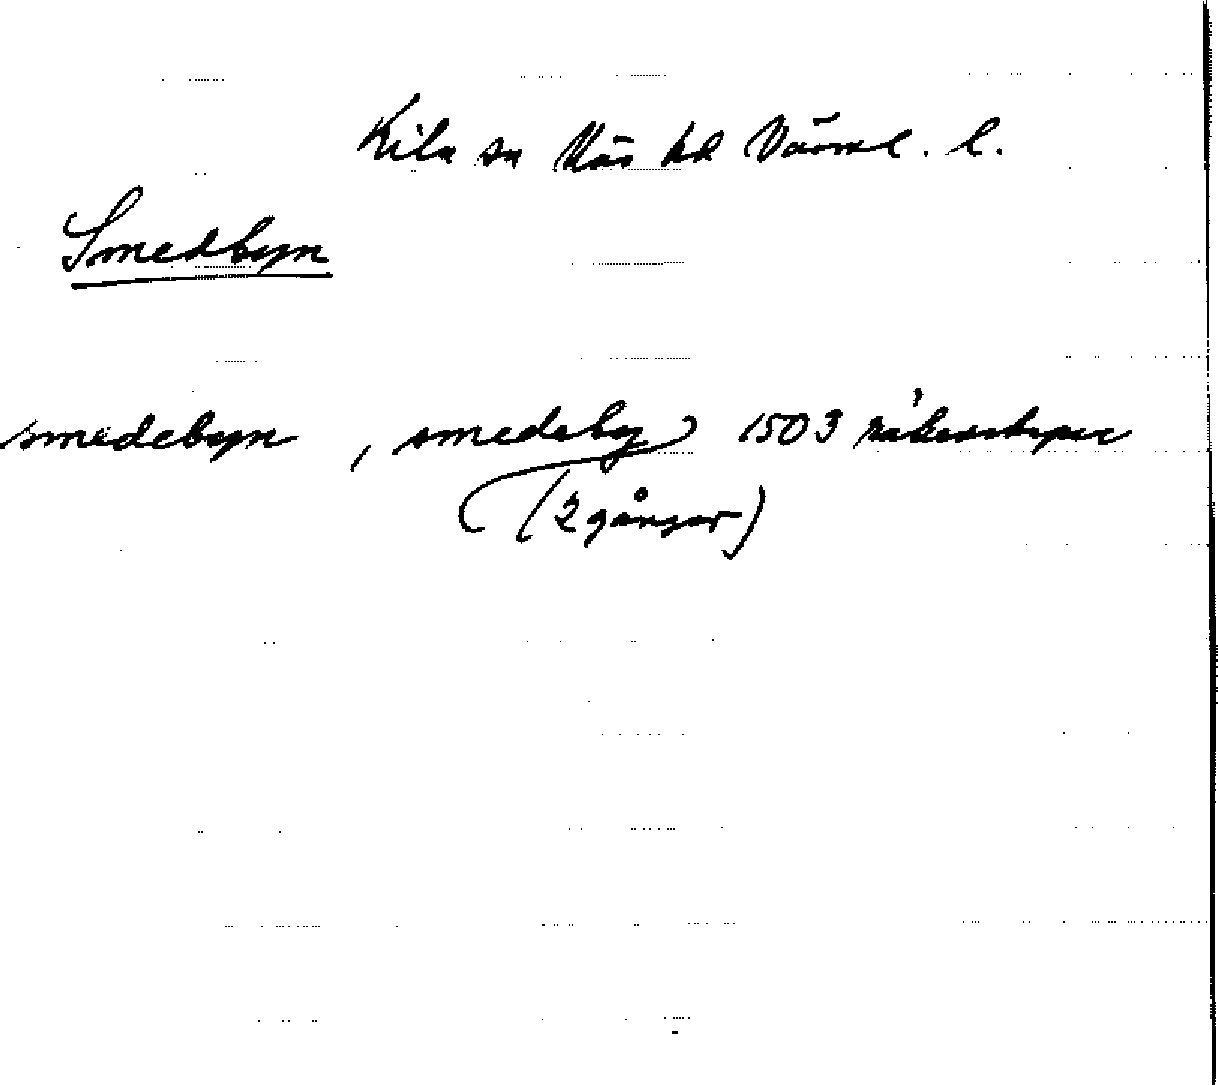 Kila sn Näs hd Värml. l.
Smedbyn
smedebyn, smedeby 1503 räkenskaper
(2 gånger)